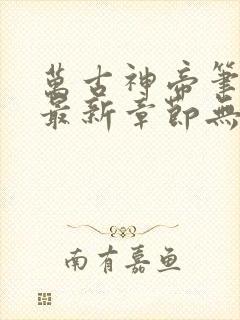 萬古神帝筆
最新章節無
南有嘉鱼